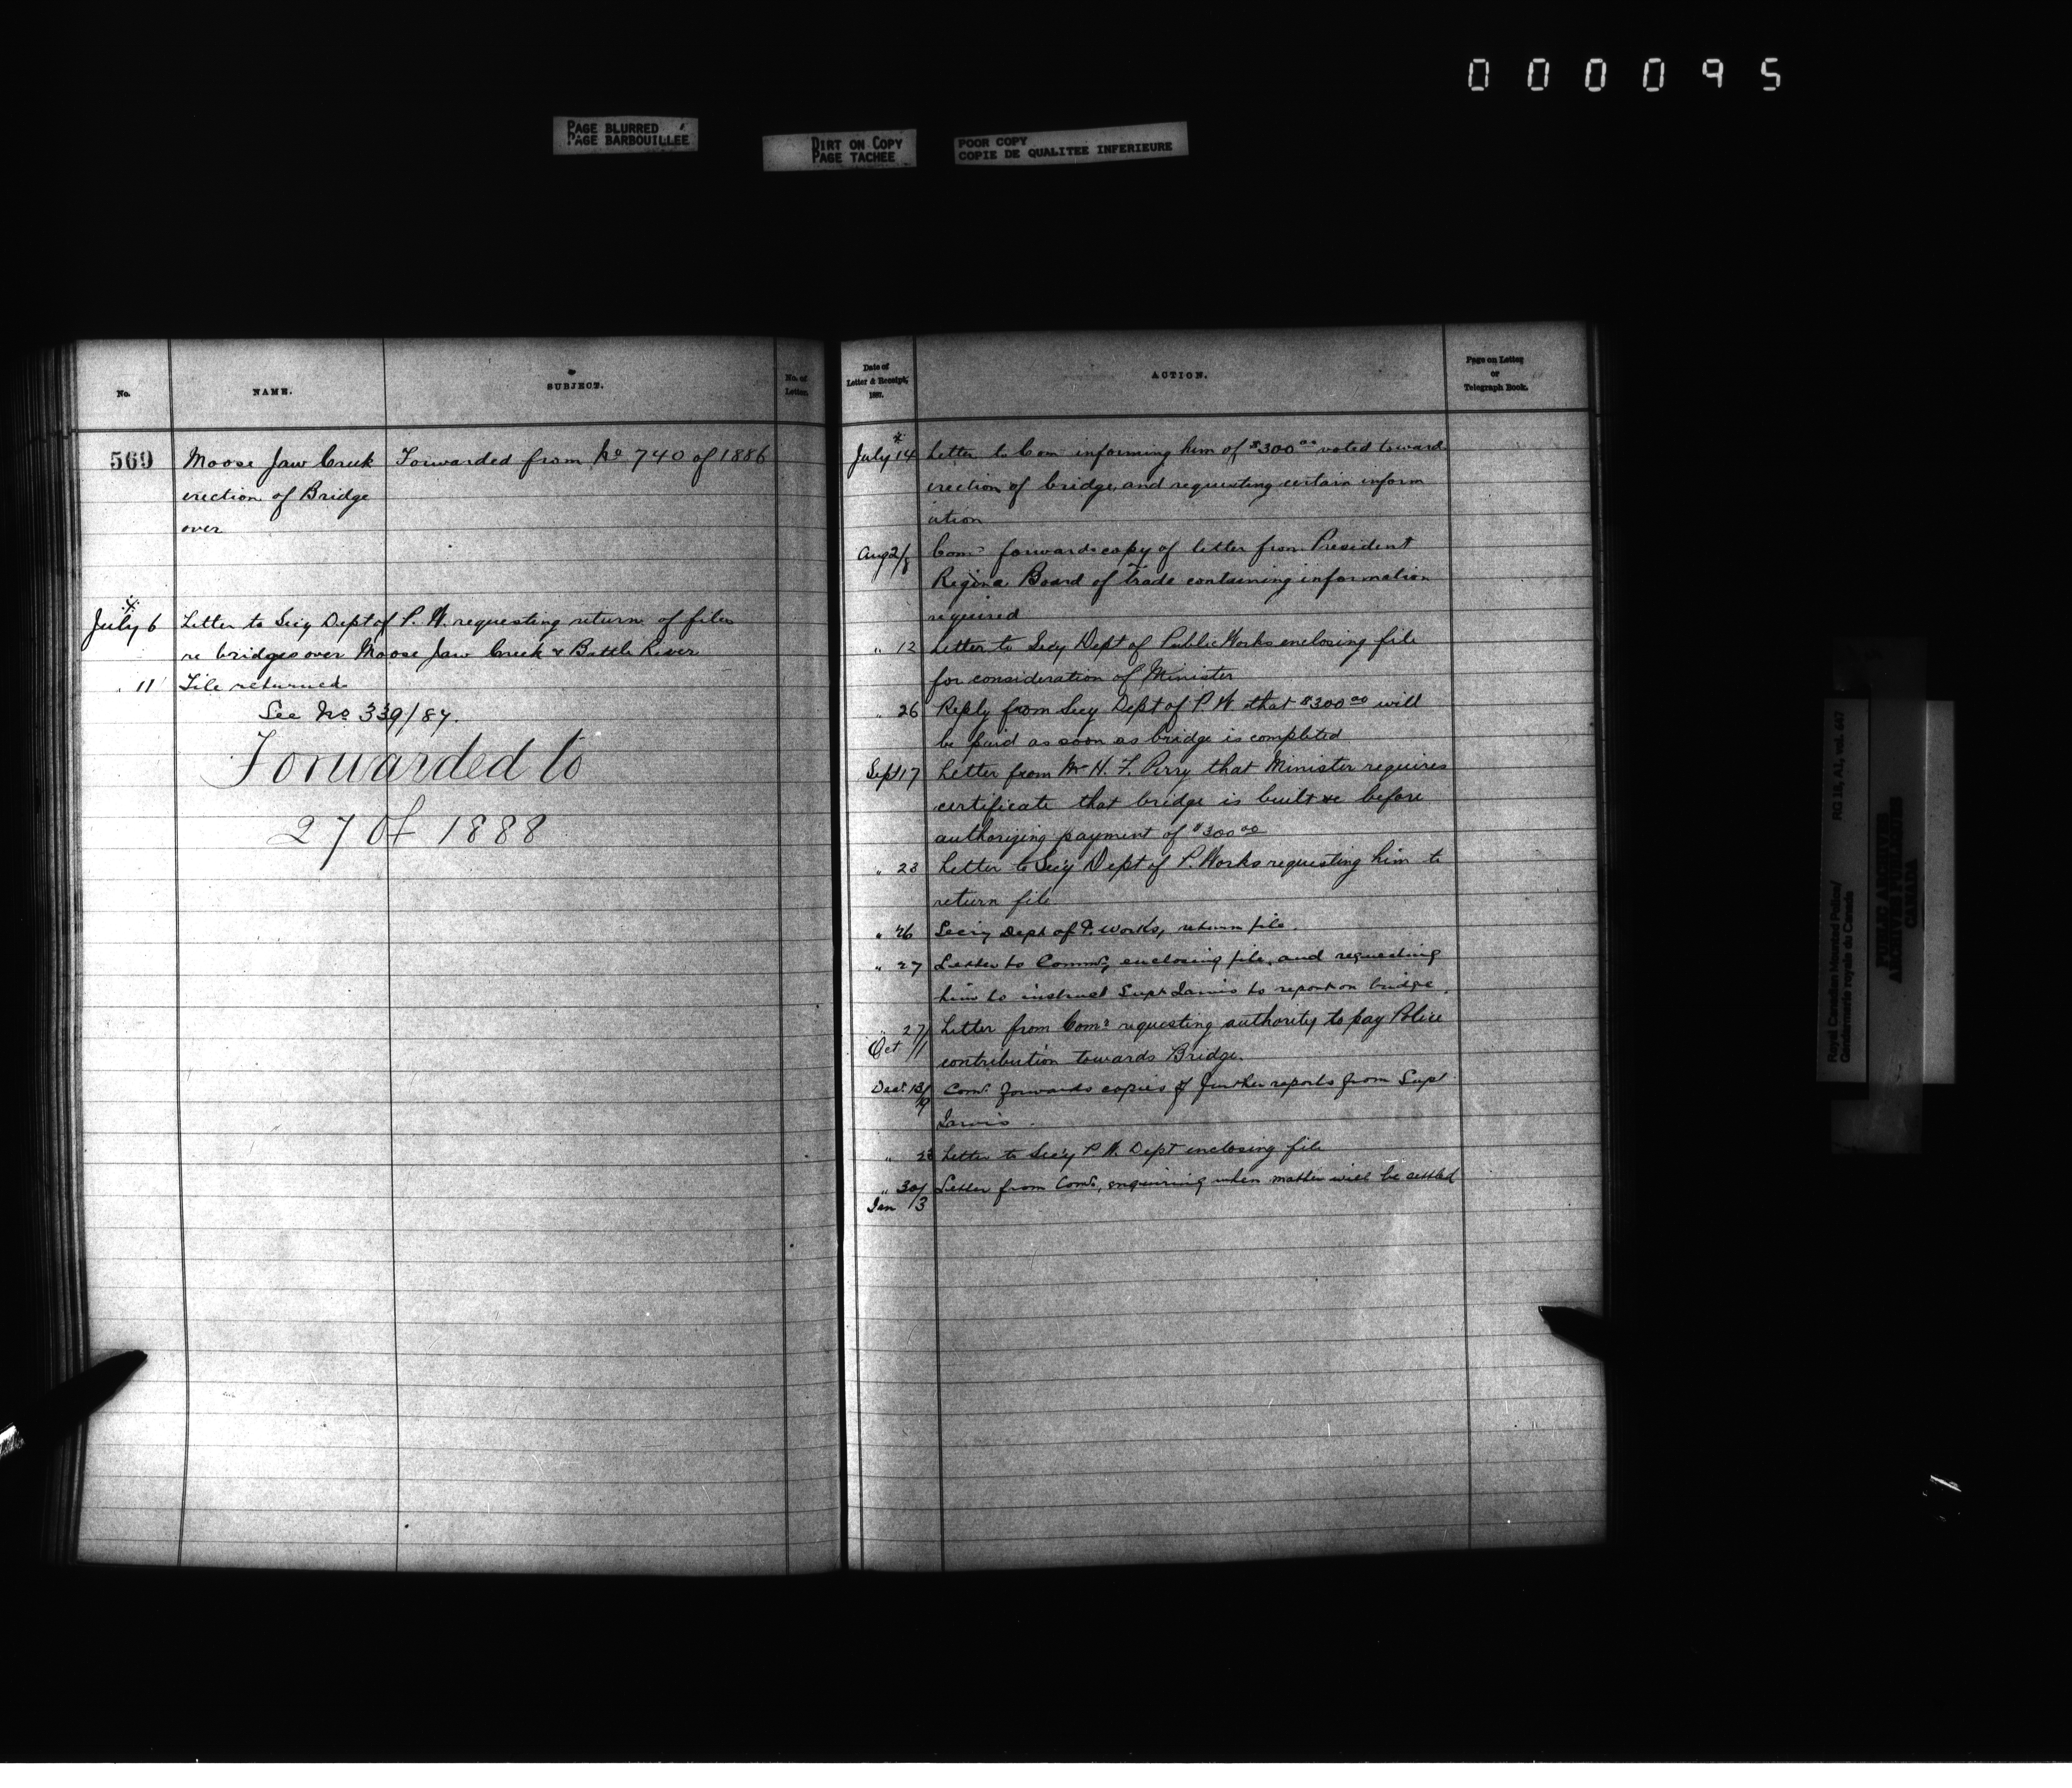 000095
PAGE BLURRED
PAGE BARBOUILLEE
DIRT ON COPY
PAGE TACHEE
POOR COPY
COPIE DE QUALITEE INFERIEURE
No.
NAME.
SUBJECT.
No. of
Letter.
569
Moose Jaw Creek
erection of Bridge
over
Forwarded from No 740 of 1886
July 6 Letter to Secy Dept of P. W. requesting return of files
re bridges over Moose Jaw Creek & Battle River
" 11 File returned
See No 339/87.
Forwarded to
27 of 1888
Date of
Letter & Receipt,
1887.
ACTION.
Page on Letter
or
Telegraph Book.
July 14 Letter to Comr informing him of $300 00 voted toward
erection of bridge, and requesting certain inform
ation
Aug 2/8 Comr forwards copy of letter from President
Regina Board of Trade containing information
required
" 12 Letter to Secy Dept of Public Works enclosing file
for consideration of Minister
" 26 Reply from Secy Dept of P W that $300 00 will
be paid as soon as bridge is completed
Sept 17 Letter from Mr H. F. Perry that Minister requires
certificate that bridge is built &c before
authorizing payment of $300 00
" 23 Letter to Secy Dept of P. Works requesting him to
return file
" 26 Secy Dept of P. Works, return file.
" 27 Letter to Commr, enclosing file, and requesting
him to instruct Supt Jarvis to report on bridge.
" 27/
Oct 11 Letter from Comr requesting authority to pay Police
contribution towards Bridge.
Decr 13/19 Comr. forwards copies of further reports from Supt
Jarvis.
" 23 Letter to Secy P. W. Dept enclosing file
" 30/
Jan 3 Letter from Comr, enquiring when matter will be settled
Royal Canadian Mounted Police/
Gendarmerie royale du Canada
RG 18, A1, vol. 447
PUBLIC ARCHIVES
ARCHIVES PUBLIQUES
CANADA